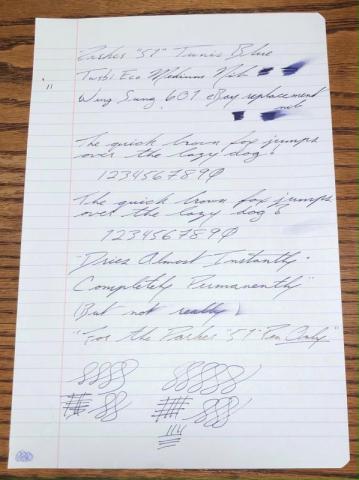 Parker "51" Tunis Blue
Twsbi Eco Medium Nib
Wing Sung 601 eBay replacement
nib
The quick brown fox jumps
over the lazy dog!
1234567890
The quick brown fox jumps
over the lazy dog!
1234567890
"Dries Almost Instantly.
Completely Permanently"
(But not really)
"For the Parker "51" Pen Only"